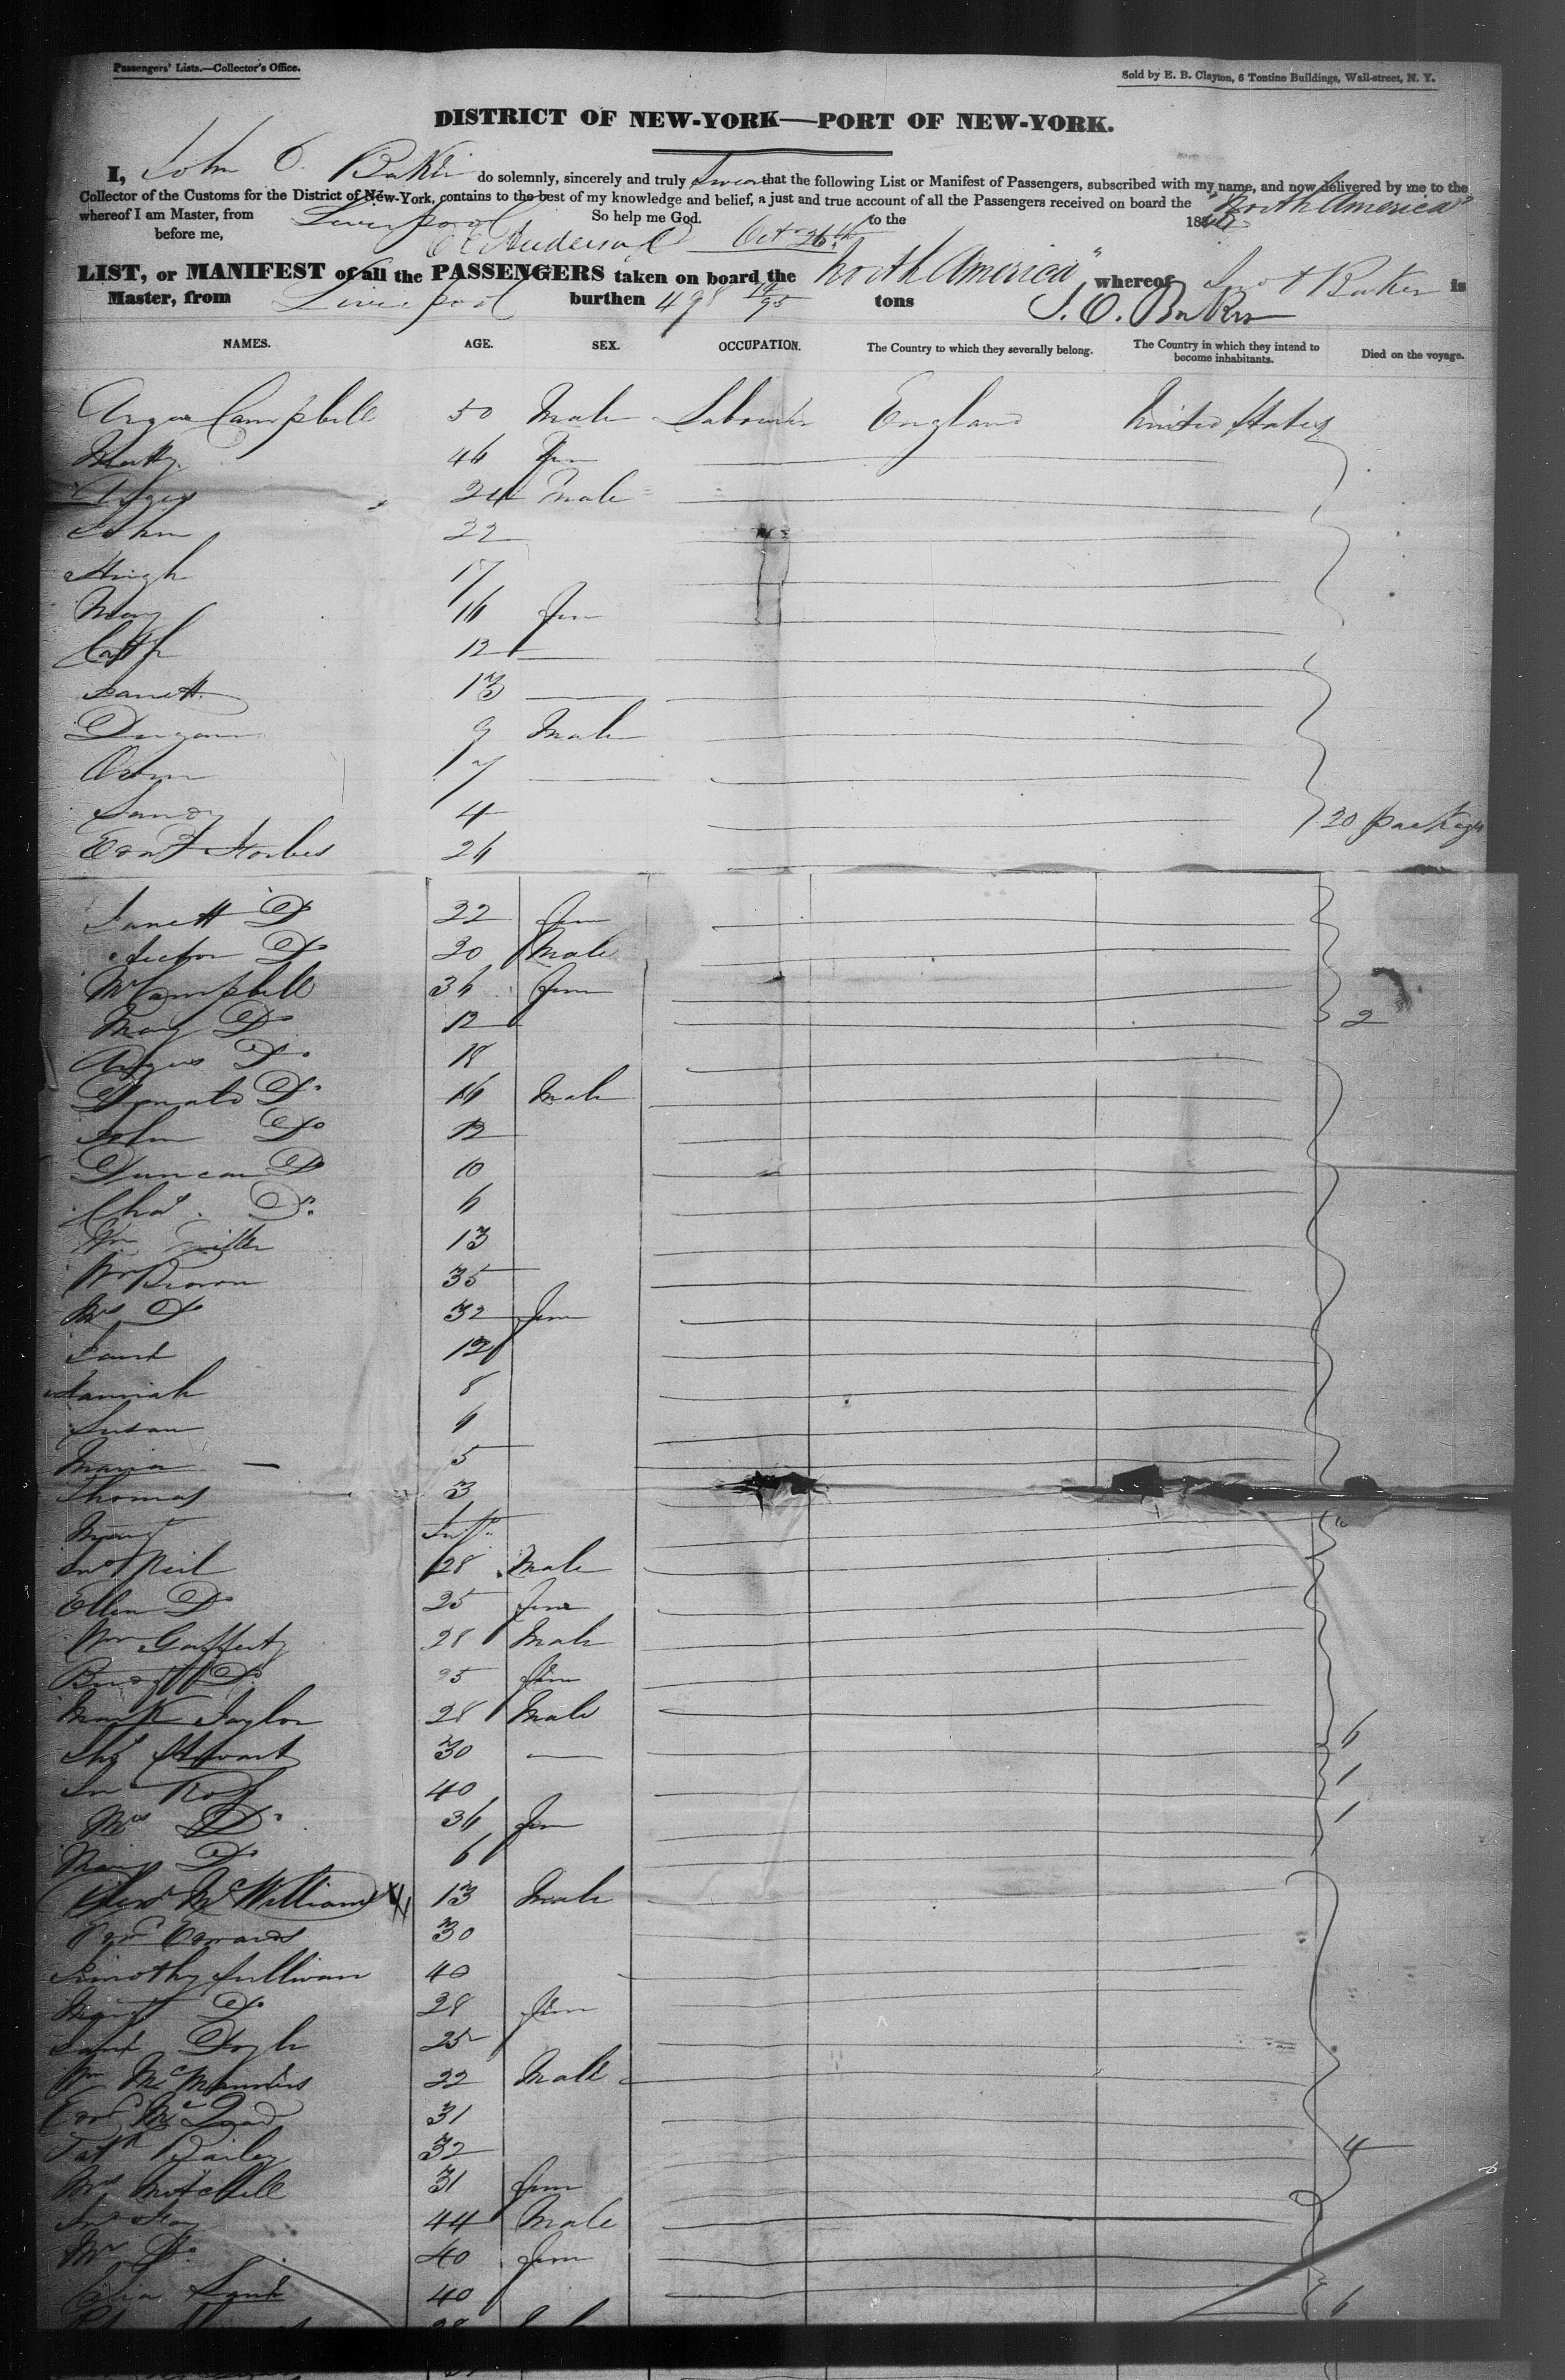 Passengers' Lists.—Collector's Office.
Sold by E. B. Clayton, 6 Tontine Buildings, Wall-street, N. Y.
DISTRICT OF NEW-YORK—PORT OF NEW-YORK.
I, John O. Baker do solemnly, sincerely and truly Swear that the following List or Manifest of Passengers, subscribed with my name, and now delivered by me to the
Collector of the Customs for the District of New-York, contains to the best of my knowledge and belief, a just and true account of all the Passengers received on board the "North America"
whereof I am Master, from Liverpool So help me God. to the 183
before me, Anderson Oct 26th
LIST, or MANIFEST of all the PASSENGERS taken on board the North America" whereof Jno O Baker is
Master, from Liverpool burthen 498 12/95 tons J. O. Baker
NAMES. AGE. SEX. OCCUPATION. The Country to which they severally belong. The Country in which they intend to become inhabitants. Died on the voyage.
Angus Campbell 50 Male Labourer England United States
46 Fem
Angus 24 Male
John 22
Hugh 17
Mary 16 Fem
Cath 12
Janett 13
Dugan 9 Male
7
Sandy 4 20 packages
Forbes 26
Janett Do 22 Fem
Hector Do 20 Male
Mrs Campbell 36 Fem
Mary Do 12 2
Angus Do 18
Donald Do 16 Male
John Do 12
Duncan Do 10
Chas. Do. 6
Wm Miller 13
Wm Brown 35
Mrs Do 32 Fem
Jane 12
Hannah 8
Susan 6
Maria 5
Thomas 3
Margt Inft.
Jno Neil 28 Male
Ellen Do 25 Fem
Wm Gafferty 28 Male
Bridgt Do. 25 Fem
Mark Taylor 28 Male 6
Thos Stewart 30 1
Jno Ross 40 1
Mrs Do 36 Fem
Mary Do 6
McWilliams 13 Male
Edwards 30
Timothy Sullivan 40
Margt Do 28 Fem
Jane Doyle 25
Wm McManus 22 Male
31
Patk Dailey 32 4
Mrs Mitchell 31 Fem
Jno Hay 44 Male
Mrs Do. 40 Fem
40 6
28